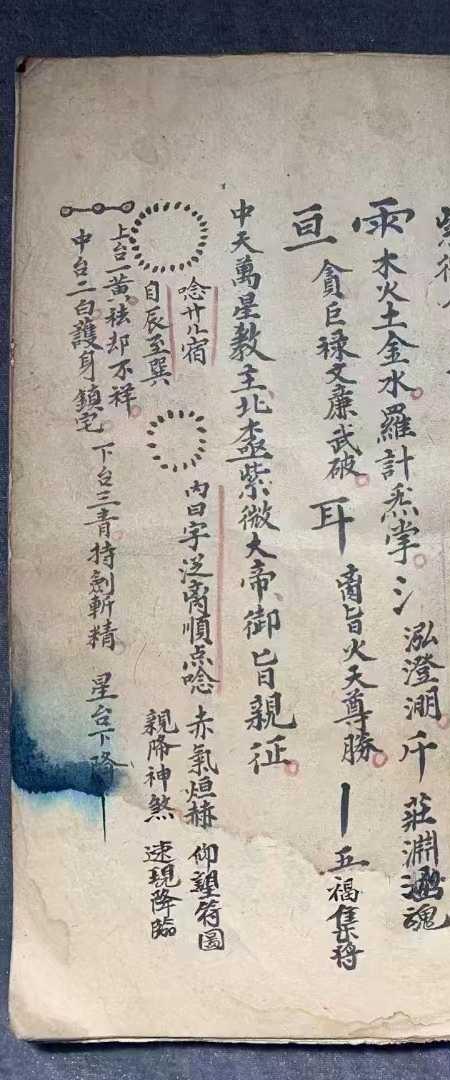 紫微
雨 木火土金水羅計炁孛 氵 泓澄淵 斤 莊淵 魂
亘 貪巨祿文廉武破 耳 奉旨火天尊勝 丨 五福集將
中天萬星教主北極紫微大帝御旨親征
唸廿八宿
自辰至巽
內曰字逆离順点唸
赤氣烜赫 仰望符圖
親降神煞 速現降臨
上台一黃祛却不祥
中台二白護身鎮宅
下台三青持劍斬精 星台下降